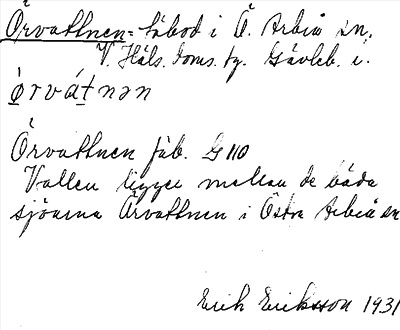 Örvattnen = fäbod i Ö. Arbrå sn,
V. Häls. doms. hg. Gävleb. l.
ò̱rvát̠nən
Örvattnen fäb. G 110
Vallen ligger mellan de båda
sjöarna Örvattnen i Östra Arbrå sn
Erik Eriksson 1931